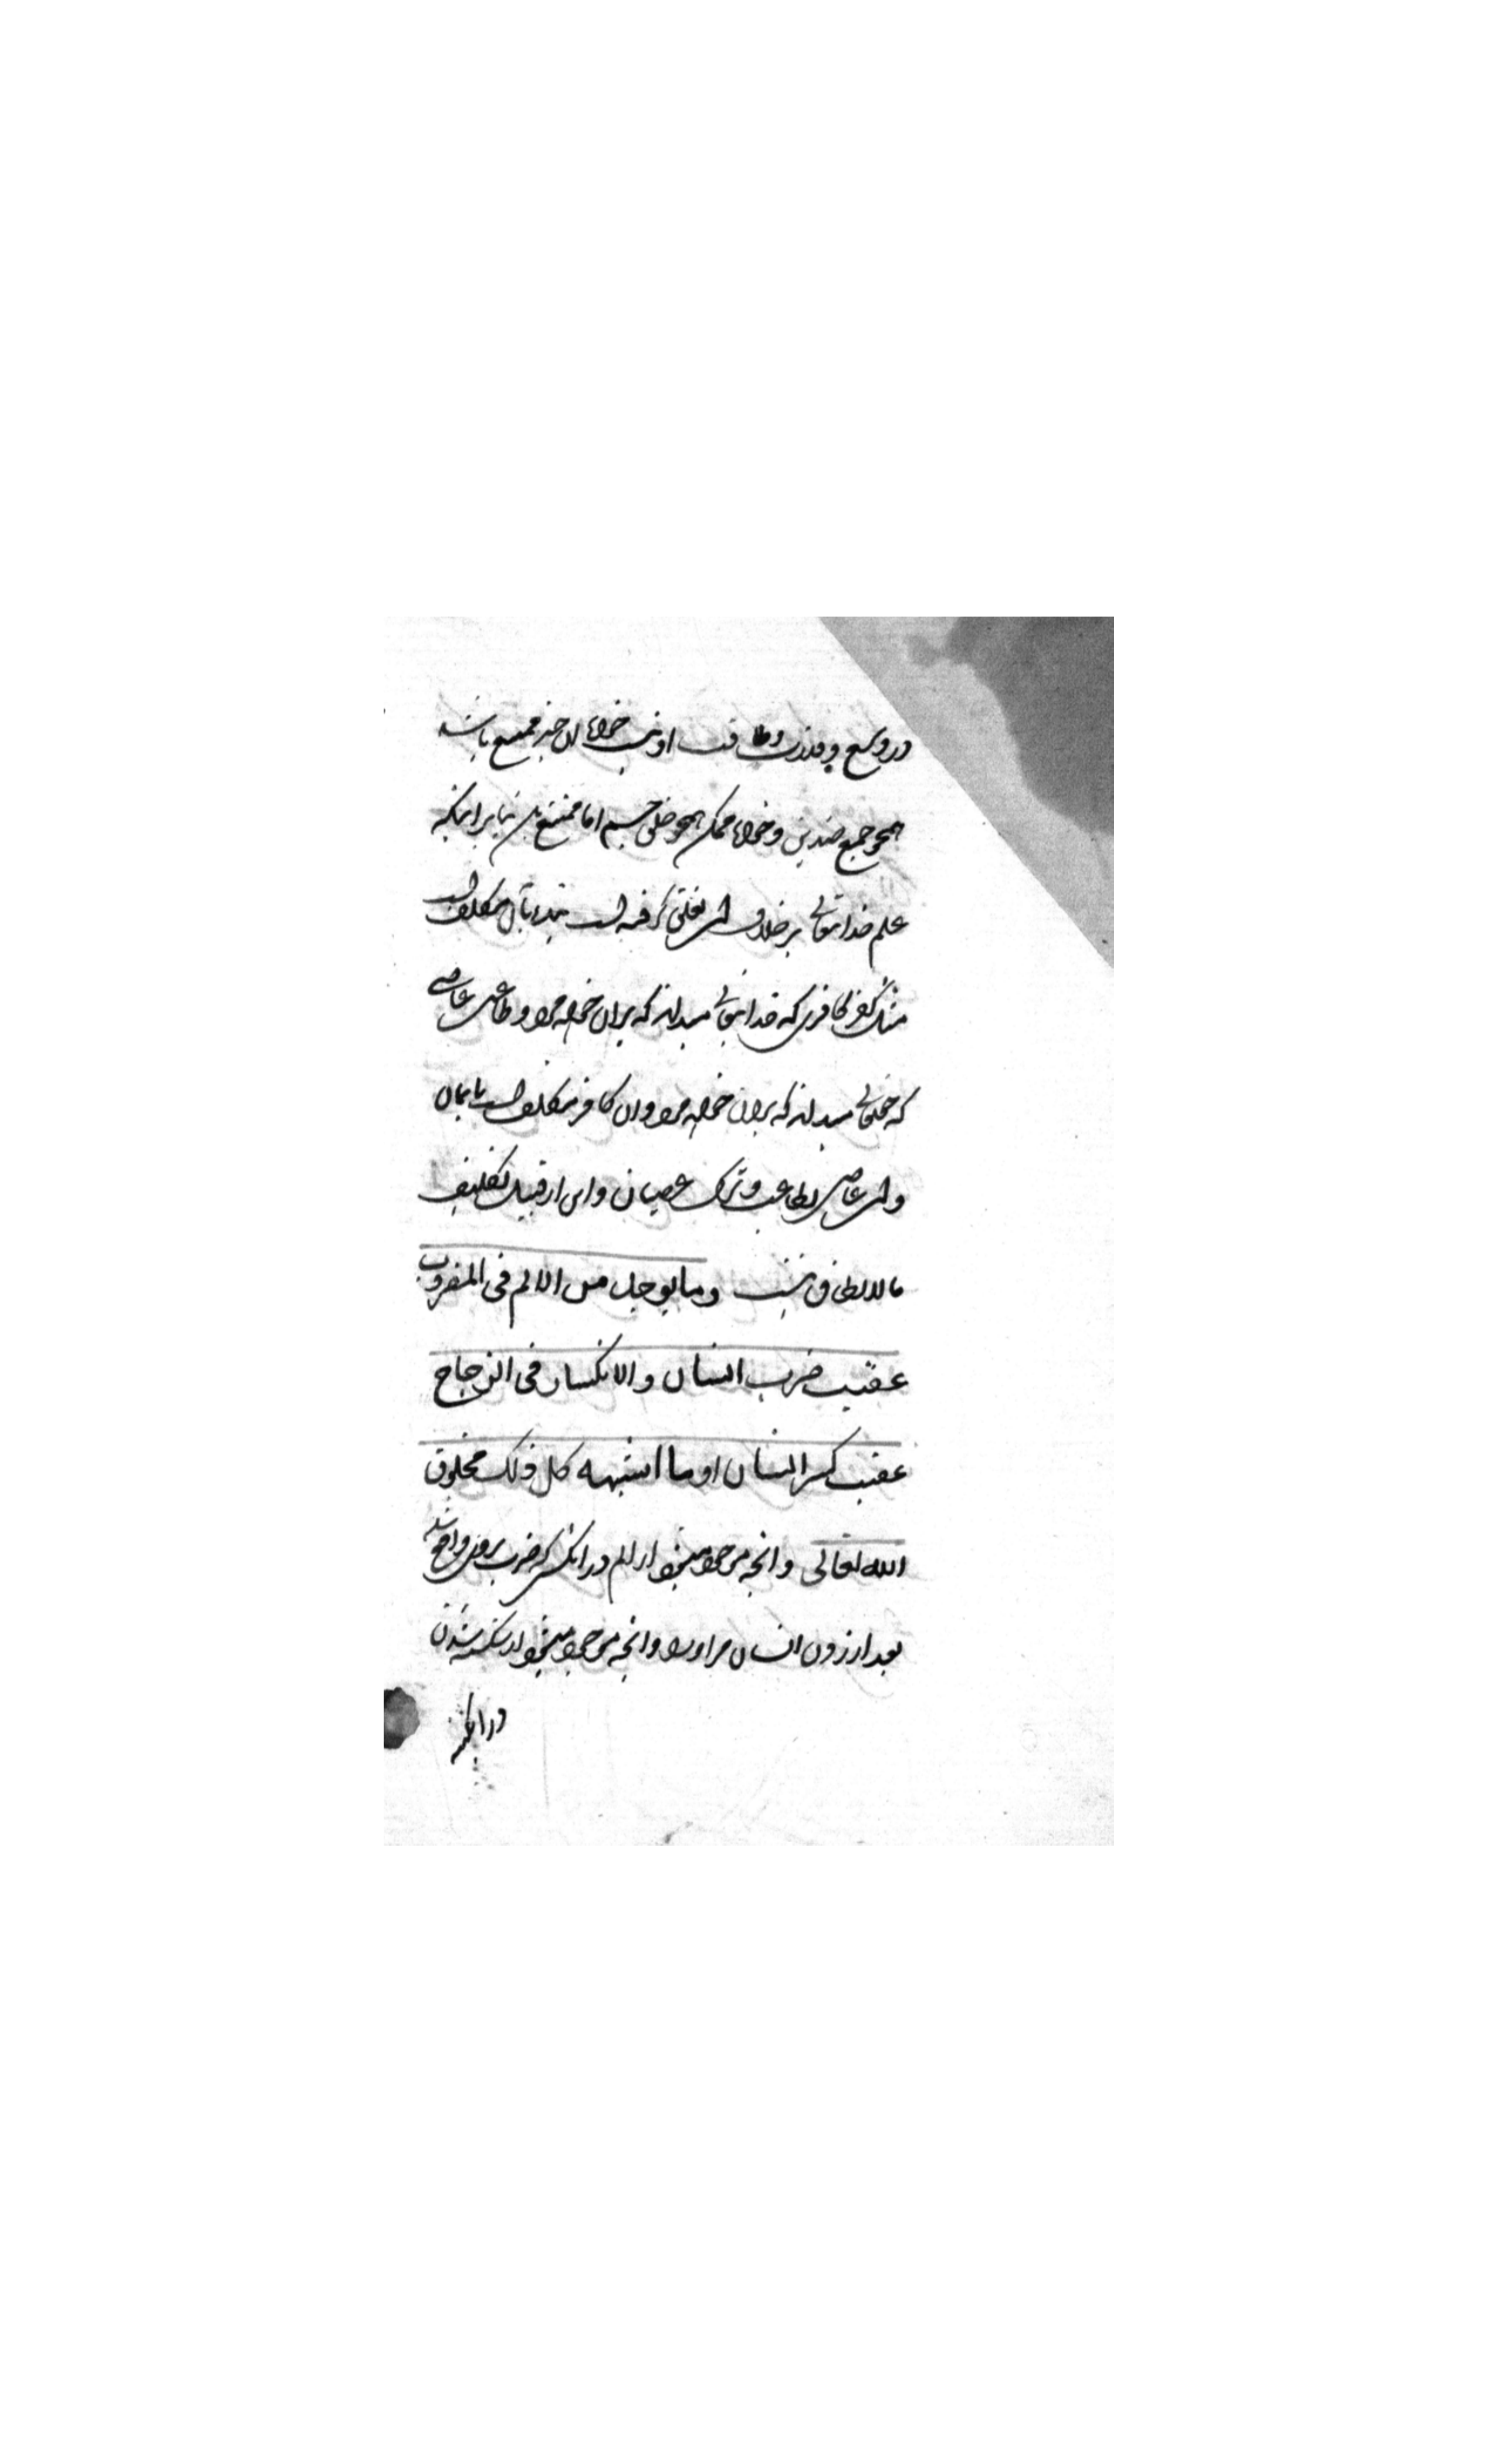 در وسع و قدرت و طاقت او نیست خواه آن چیز ممتنع باشد
همچو جمع ضدین و خواه ممکن همچو خلق جسم اما ممتنع بنا بر اینکه
علم خدایتعالی بر خلاف آن تعلق گرفته است بنده بآن مکلف است
مثل کفر کافری که خدایتعالی میداند که بر آن خواهد مرد و عاصی
که خدایتعالی میداند که بر آن خواهد مرد و آن کافر مکلف است بایمان
و آن عاصی بطاعت و ترک عصیان و این از قبیل تکلیف
ما لا یطاق نیست وما یوجد من الالم فی المضروب
عقیب ضرب انسان والانکسار فی الزجاج
عقیب کسر انسان او ما اشبهه کل ذلک مخلوق
الله تعالی و آنچه موجود میشود از الم در آنکس که ضرب بروی واقع شد
بعد از زدن انسان مر او را و آنچه موجود میشود از شکسته شدن
در آبگینه